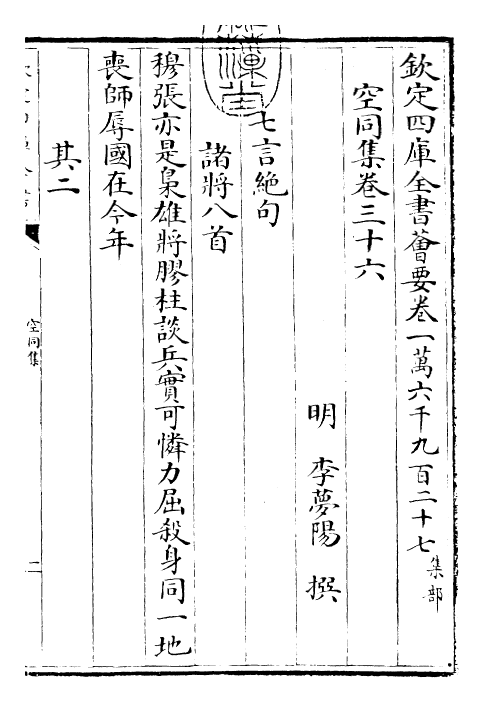 欽定四庫全書薈要卷一萬六千九百二十七 集部
空同集卷三十六
明 李夢陽 撰
七言絶句
諸將八首
穆張亦是梟雄將膠柱談兵實可憐力屈殺身同一地
喪師辱國在今年
其二
空同集